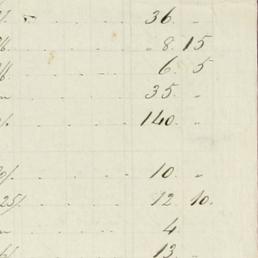 36. "
8. 15
6. 5
35. "
140. "
10. "
25/. 12. 10.
4.
13. "